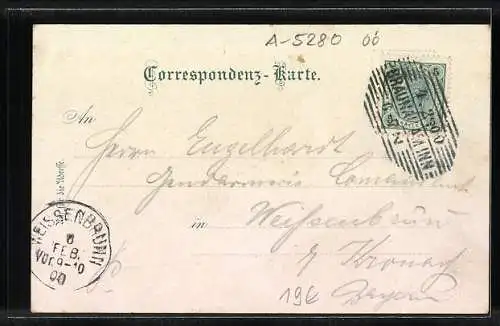 A-5280 06
Correspondenz-Karte.
An
Herrn Engelhardt
Gendarmerie Comandant
in
Weissenbrunn
Kronach
Bayern
BRAUNAU AM INN
WEISSENBRUNN
6
FEB.
VOR 9-10
00